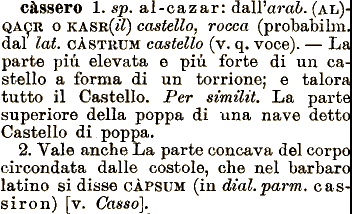 càssero 1. sp. al-cazar: dall'arab. (AL)-
QAÇR o KASR(il) castello, rocca (probabilm.
dal lat. CÀSTRUM castello (v. q. voce). — La
parte piú elevata e piú forte di un ca-
stello a forma di un torrione; e talora
tutto il Castello. Per similit. La parte
superiore della poppa di una nave detto
Castello di poppa.
2. Vale anche La parte concava del corpo
circondata dalle costole, che nel barbaro
latino si disse CÀPSUM (in dial. parm. cas-
siron) [v. Casso].